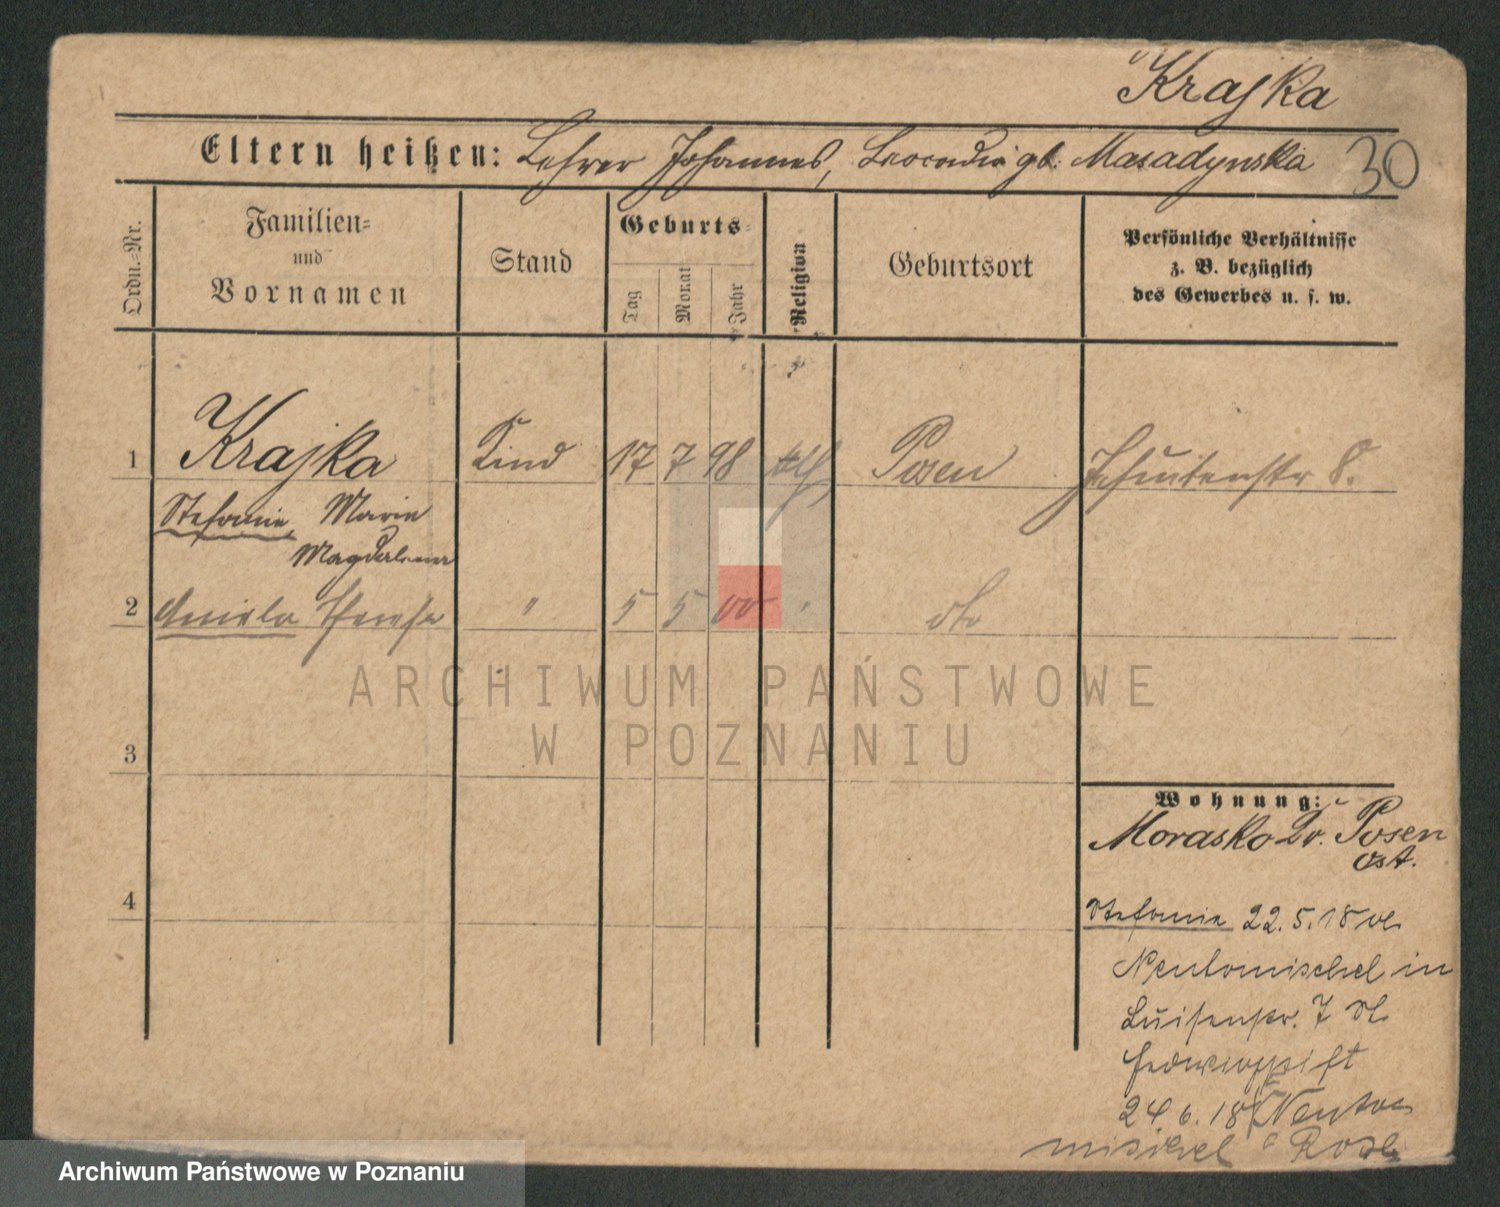 Krajka
Eltern heißen: Lehrer Johannes, Leocadia gb. Masadynska 30
Ordn.-Nr.
Familien-
und
Vornamen
Stand
Geburts-
Tag
Monat
Jahr
Religion
Geburtsort
Persönliche Verhältnisse
z. B. bezüglich
des Gewerbes u. s. w.
1 Krajka Kind 17 7 98 kth Posen Jesuitenstr 8.
Stefanie Marie
Magdalena
2 Aniela Therese " 5 5 00 " do
ARCHIWUM PAŃSTWOWE
W POZNANIU
3
Wohnung:
Morasko Kr. Posen
Ost.
4
Stefanie 22.5.18 v.
Neutomischel in
Luisenstr. 7 bl.
24.6.18 Neuto
mischel
Archiwum Państwowe w Poznaniu